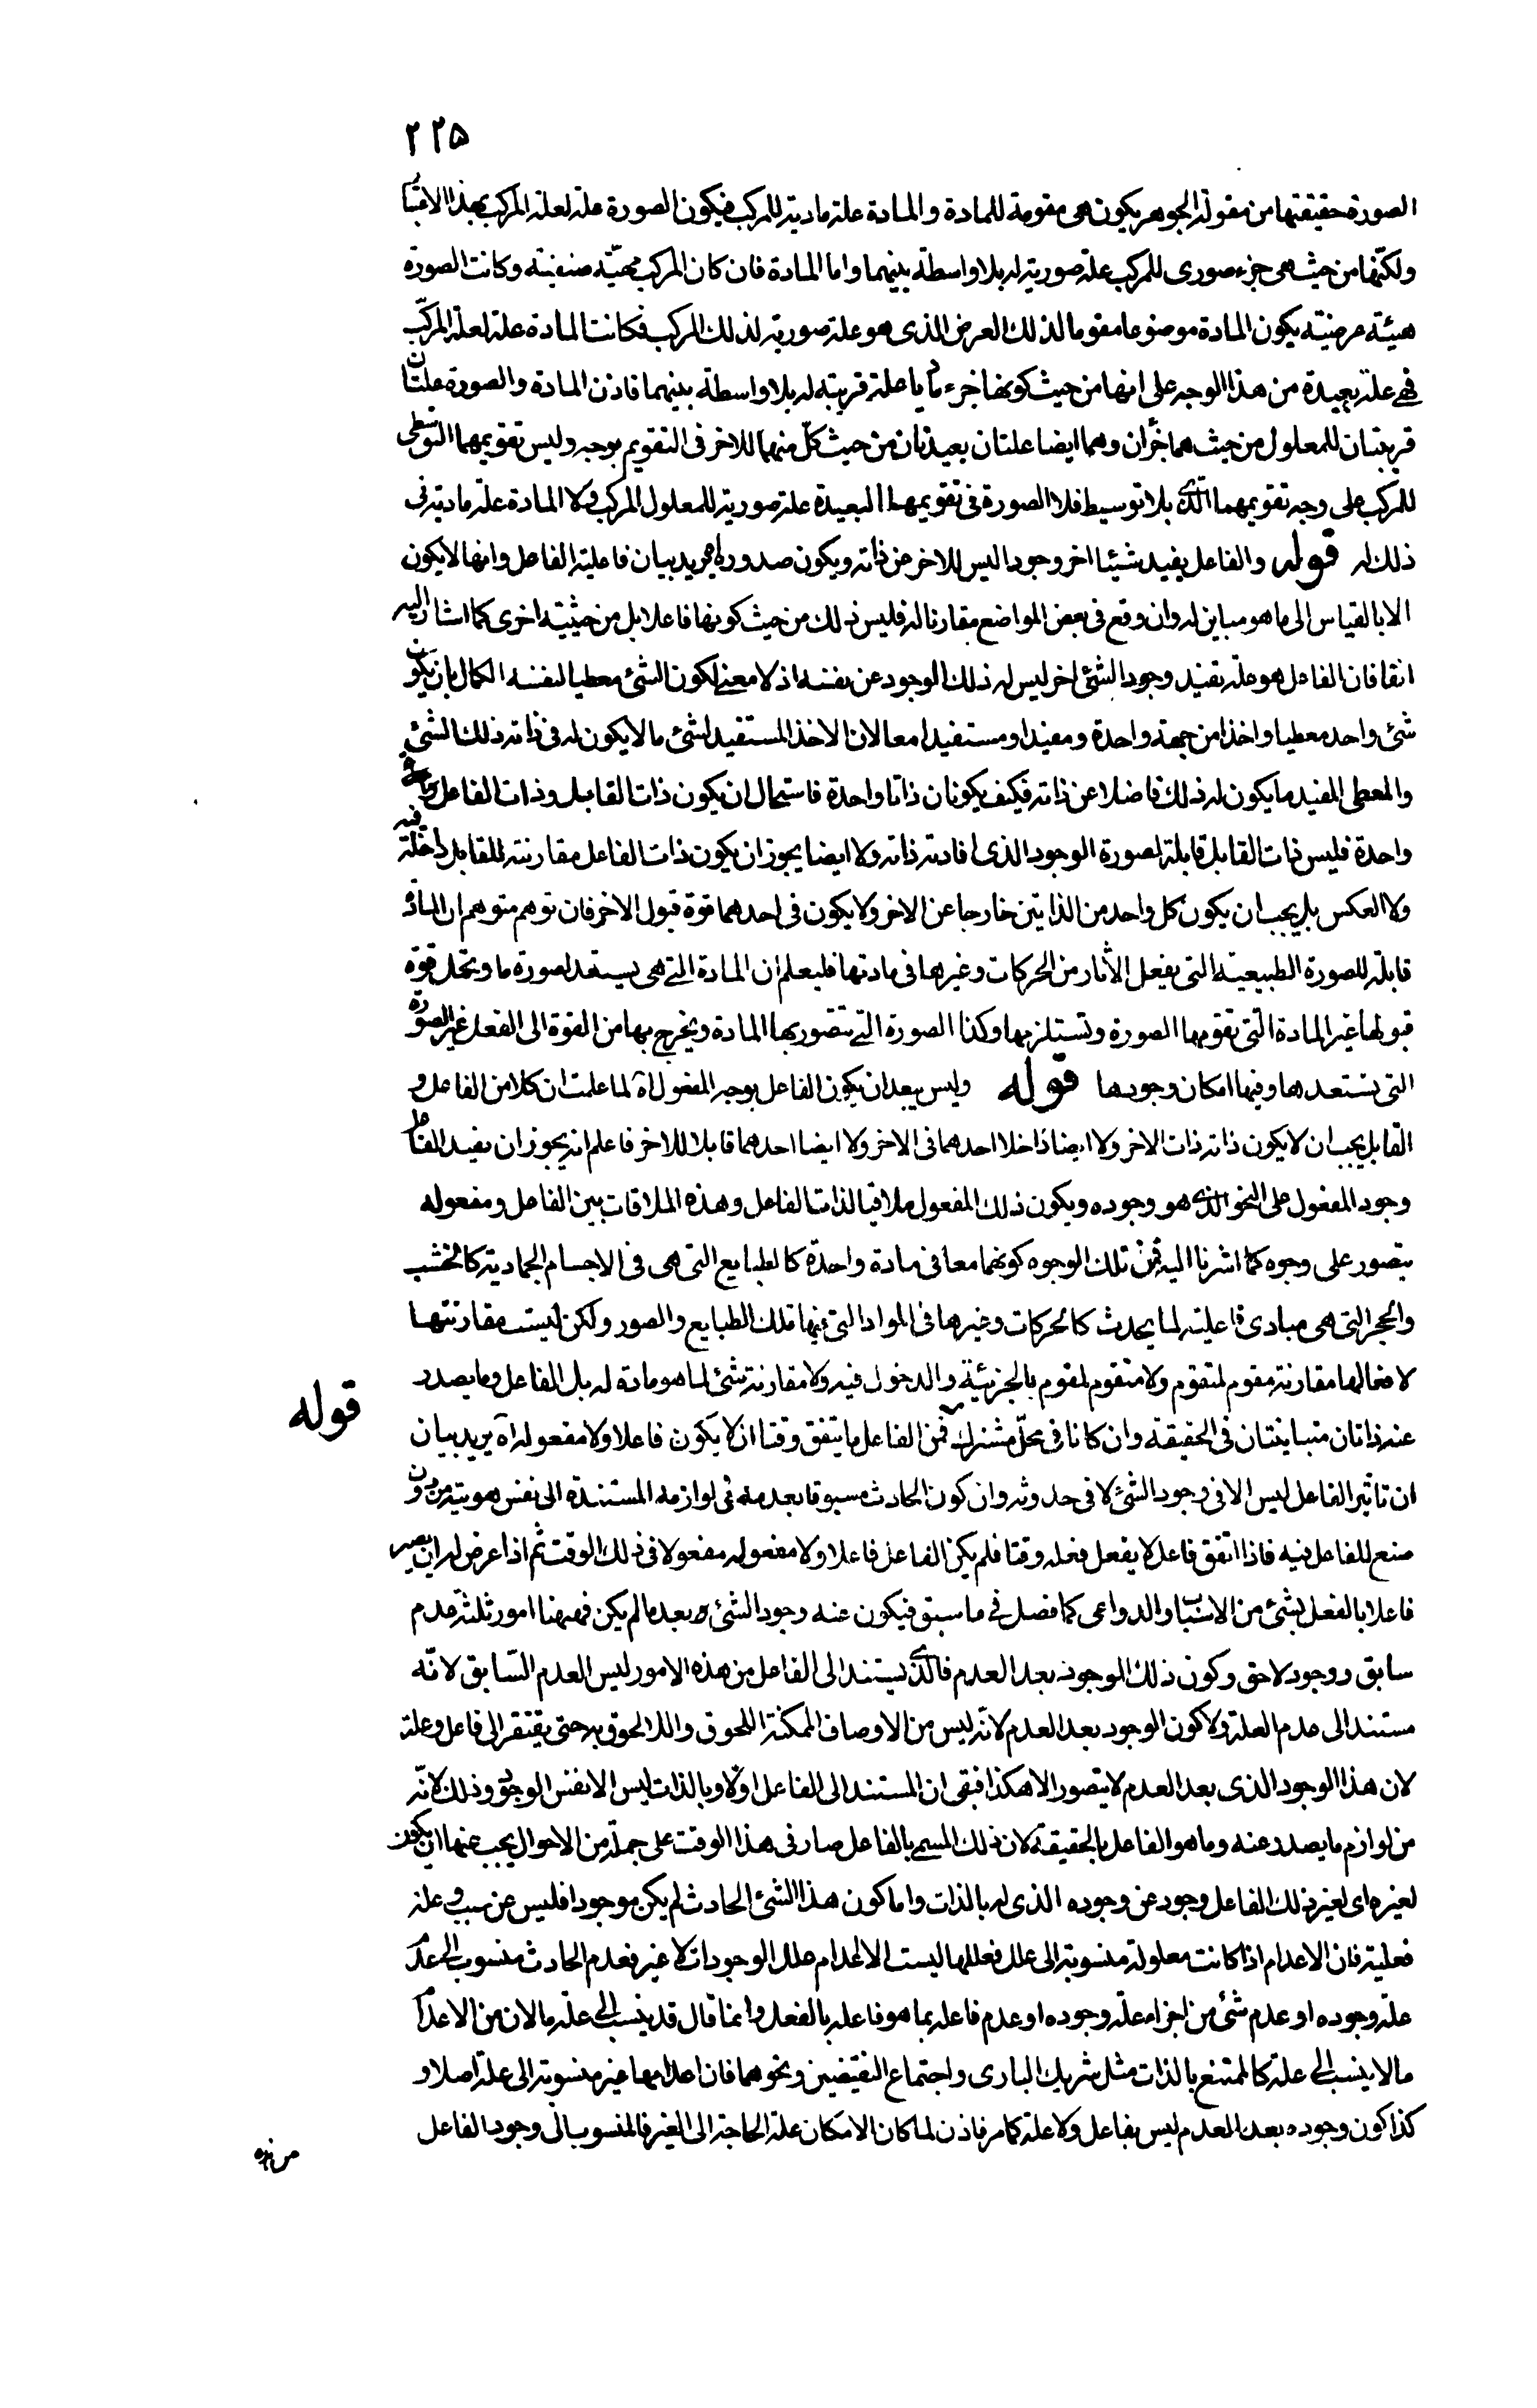 ٢٢٥
الصورة حقيقتها من مقولة الجوهر يكون هى مقومة للمادة والمادة علة مادية للمركب فيكون الصورة علة لعلة المركب بهذا الاعتبار
ولكنها من حيث هى جزء صورى للمركب علة صورية له بلا واسطة بينهما واما المادة فان كان المركب مهيّة صنفية وكانت الصورة
هيئة عرضية يكون المادة موضوعا مقوما لذلك العرض الذى هو علة صورية لذلك المركب فكانت المادة علة لعلة المركّب
فهى علة بعيدة من هذا الوجه على انها من حيث كونها جزء ماديا علة قريبة له بلا واسطة بينهما فاذن المادة والصورة علتان
قريبتان للمعلول من حيث هما جزأن وهما ايضا علتان بعيدتان من حيث كلّ منهما للاخر فى التقويم بوجه وليس تقويمهما التوسطى
للمركب على وجه تقويمهما الذى بلا توسيط فلا الصورة فى تقويمها البعيدة علة صورية للمعلول المركب ولا المادة علة مادية فى
ذلك له قوله والفاعل يفيد شيئا اخر وجودا ليس للاخر عن ذاته ويكون صدوره اه يريد بيان فاعلية الفاعل وانها لا يكون
الا بالقياس الى ما هو مباين له وان وقع فى بعض المواضع مقارنا له فليس ذلك من حيث كونها فاعلا بل من حيثية اخرى كما اشار اليه
انفا فان الفاعل هو علة تفيد وجود الشئ اخر ليس له ذلك الوجود عن نفسه اذ لا معنى لكون الشئ معطيا لنفسه الكمال بان يكون
شئ واحد معطيا واخذا من جهة واحدة ومفيدا ومستفيدا معا لان الاخذ المستفيد لشئ ما لا يكون له فى ذاته ذلك الشئ
والمعطى المفيد ما يكون له ذلك فاضلا عن ذاته فكيف يكونان ذاتا واحدة فاستحال ان يكون ذات القابل وذات الفاعل
واحدة فليس ذات القابل قابلة لصورة الوجود الذى افادته ذاته ولا ايضا يجوز ان يكون ذات الفاعل مقارنته للقابل داخلة فيه
ولا العكس بل يجب ان يكون كل واحد من الذاتين خارجا عن الاخر ولا يكون فى احدهما قوة قبول الاخر فان توهم متوهم ان المادة
قابلة للصورة الطبيعية التى يفعل الأثار من الحركات وغيرها فى مادتها فليعلم ان المادة التى هى يستعد لصورة ما وتحمل قوة
قبولها غير المادة التى تقومها الصورة وتستلزمها وكذا الصورة التى تتصور بها المادة ويخرج بها من القوة الى الفعل غير الصورة
التى تستعد ها وفيها امكان وجودها قوله وليس يبعد ان يكون الفاعل يوجد المفعول اه لما علمت ان كلا من الفاعل و
القابل يجب ان لا يكون ذاته ذات الاخر ولا ايضا داخلا احدهما فى الاخر ولا ايضا احدهما قابلا للاخر فاعلم انه يجوز ان يفيد الفاعل
وجود المفعول على النحو الذى هو وجوده ويكون ذلك المفعول ملاقيا لذات الفاعل وهذه الملاقات بين الفاعل ومفعوله
يتصور على وجوه كما اشرنا اليه فمن تلك الوجوه كونهما معا فى مادة واحدة كالطبايع التى هى فى الاجسام الجمادية كالخشب
والحجر التى هى مبادى فاعلية لما يحدث كالحركات وغيرها فى المواد التى فيها تلك الطبايع والصور ولكن ليست مقارنتها
لافعالها مقارنة مقوم لمتقوم ولا متقوم لمقوم بالجزئية والدخول فيه ولا مقارنة شئ لما هو مادة له بل الفاعل وما يصدر
عنه ذاتان متباينتان فى الحقيقة وان كانا فى محلّ مشترك فمن الفاعل ما يتفق وقتا ان لا يكون فاعلا ولا مفعوله اه يريد بيان
قوله
ان تاثير الفاعل ليس الا فى وجود الشئ لا فى حدوثه وان كون الحادث مسبوقا بعدمه فى لوازمه المستندة الى نفس هويته من دون
صنع للفاعل فيه فاذا اتفق فاعل لا يفعل فعله وقتا فلم يكن الفاعل فاعلا ولا مفعوله مفعولا فى ذلك الوقت ثم اذا عرض له ان يصير
فاعلا بالفعل لشئ من الاسباب والدواعى كما فصل فى ما سبق فيكون عنه وجود الشئ بعد ما لم يكن فههنا امور ثلثة عدم
سابق ووجود لاحق وكون ذلك الموجود بعد العدم فالذى يستند الى الفاعل من هذه الامور ليس العدم السّابق لانّه
مستند الى عدم العلة ولا كون الوجود بعد العدم لانه ليس من الاوصاف الممكنة اللحوق واللا لحوق به حتى يفتقر الى فاعل وعلة
لان هذا الوجود الذى بعد العدم لا يتصور الا هكذا فبقى ان المستند الى الفاعل اولا وبالذات ليس الا نفس الوجود وذلك لانّه
من لوازم ما يصدر عنه وما هو الفاعل بالحقيقة لان ذلك المسمى بالفاعل صار فى هذا الوقت على جملة من الاحوال يجب عنها ان يكون
لغيره اى لغير ذلك الفاعل وجود عن وجوده الذى له بالذات واما كون هذا الشئ الحادث لم يكن موجودا فليس عن سبب وعلة
فعلية فان الاعدام اذا كانت معلولة منسوبة الى علل فعللها ليست الا اعدام علل الوجودات لا غير فعدم الحادث منسوب الى عدم
علة وجوده او عدم شئ من اجزاء علة وجوده او عدم فاعله بما هو فاعله بالفعل وانما قال قد ينسب الى علة ما لان من الاعدام
ما لا ينسب الى علة كالممتنع بالذات مثل شريك البارى واجتماع النقيضين ونحوهما فان اعدامها غير منسوبة الى علة اصلا و
كذا كون وجوده بعد العدم ليس بفاعل ولا علة كما مر فاذن لما كان الامكان علة الحاجة الى الغير فالمنسوب الى وجود الفاعل